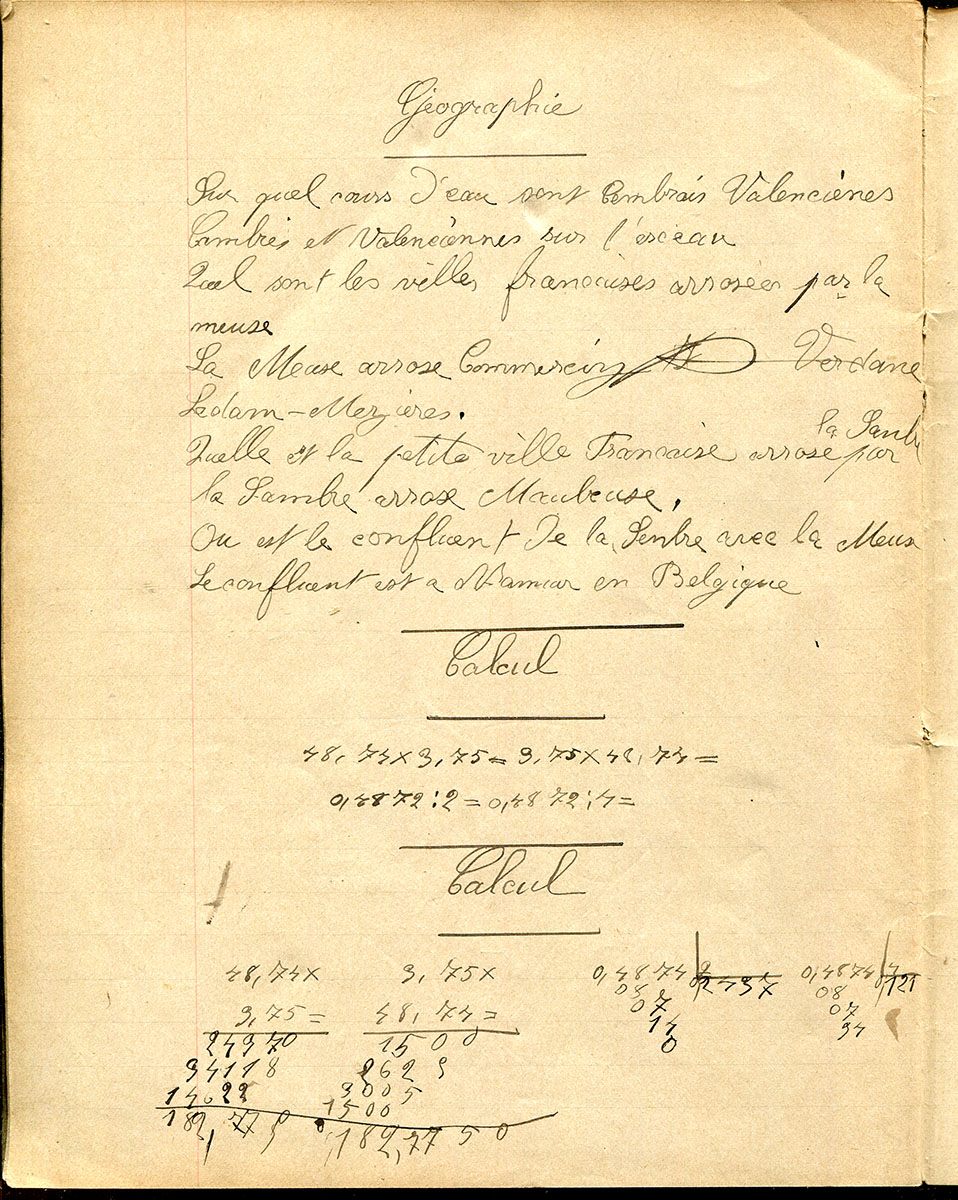 Géographie
Sur quel cours d'eau sont Cambrais Valenciènes
Cambrés et Valenciènnes sur l'esceau
Quel sont les villes francaises arrosées par la
meuse
La Meuse arrose Commercing Verdane
Sedam-Mezières.
la Sanbr
Quelle est la petite ville Francaise arrose par
la Sambre arrose Maubeuse.
Ou est le confluent de la Senbre avec la Meus
Le confluent est a Namur en Belgique
Calcul
48,74x3,75= 3,75x48,74=
0,4872:2=0,4872:4=
Calcul
48,74x 3,75x 0,4874 2 0,4874 4
08 2437 08 0,121
07 07
3,75= 48,74= 14 34
24370 1500 0
34118 2625
14622 3005
1500
182,775 182,7750